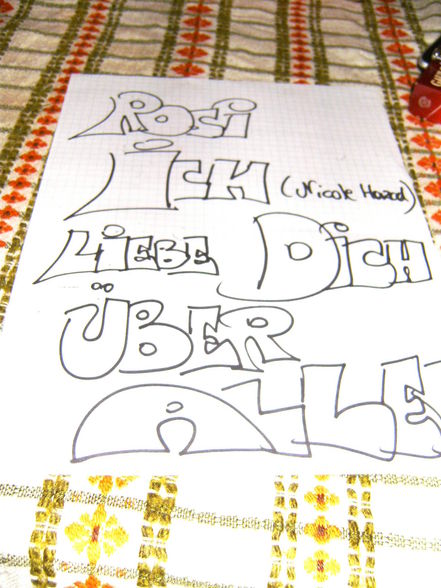 Rosi
ICH (Nicole Hozod)
LiEBE DiCH
ÜBER
ALLE